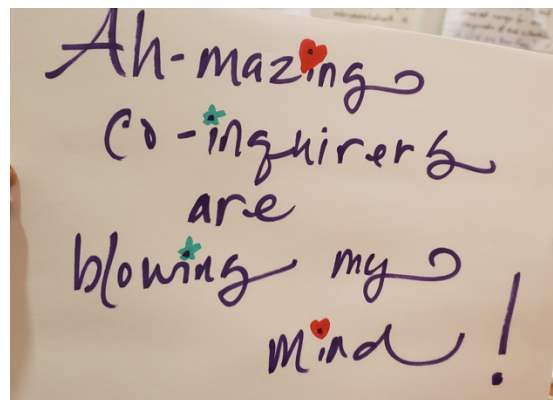 Ah-mazing
Co-inquirers
are
blowing my
mind!